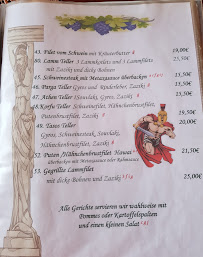 43. Filet vom Schwein mit Kräuterbutter 4 19,00€
80. Lamm Teller 3 Lammkotelets und 3 Lammfilets
mit Zaziki und dicke Bohnen 23,50€
45. Schweinesteak mit Metaxasauce überbacken 15,50€
46. Parga Teller Gyros und Rinderleber, Zaziki 15,50€
47. Athen Teller Gyros, Zaziki 15,50€
48. Korfu Teller Schweinefilet, Hähnchenbrustfilet,
Putenbrustfilet, Zaziki
49. Tasos Teller
Gyros, Schweinesteak, Souvlaki,
Hähnchenbrustfilet, Zaziki
52. Puten/Hähnchenbrustfilet Hawai 21,50€
überbacken mit Metaxasauce oder Rahmsauce
53. Gegrilltes Lammfilet
mit dicke Bohnen und Zaziki 25,00€
Alle Gerichte servieren wir wahlweise mit
Pommes oder Kartoffelspalten
und einen kleinen Salat